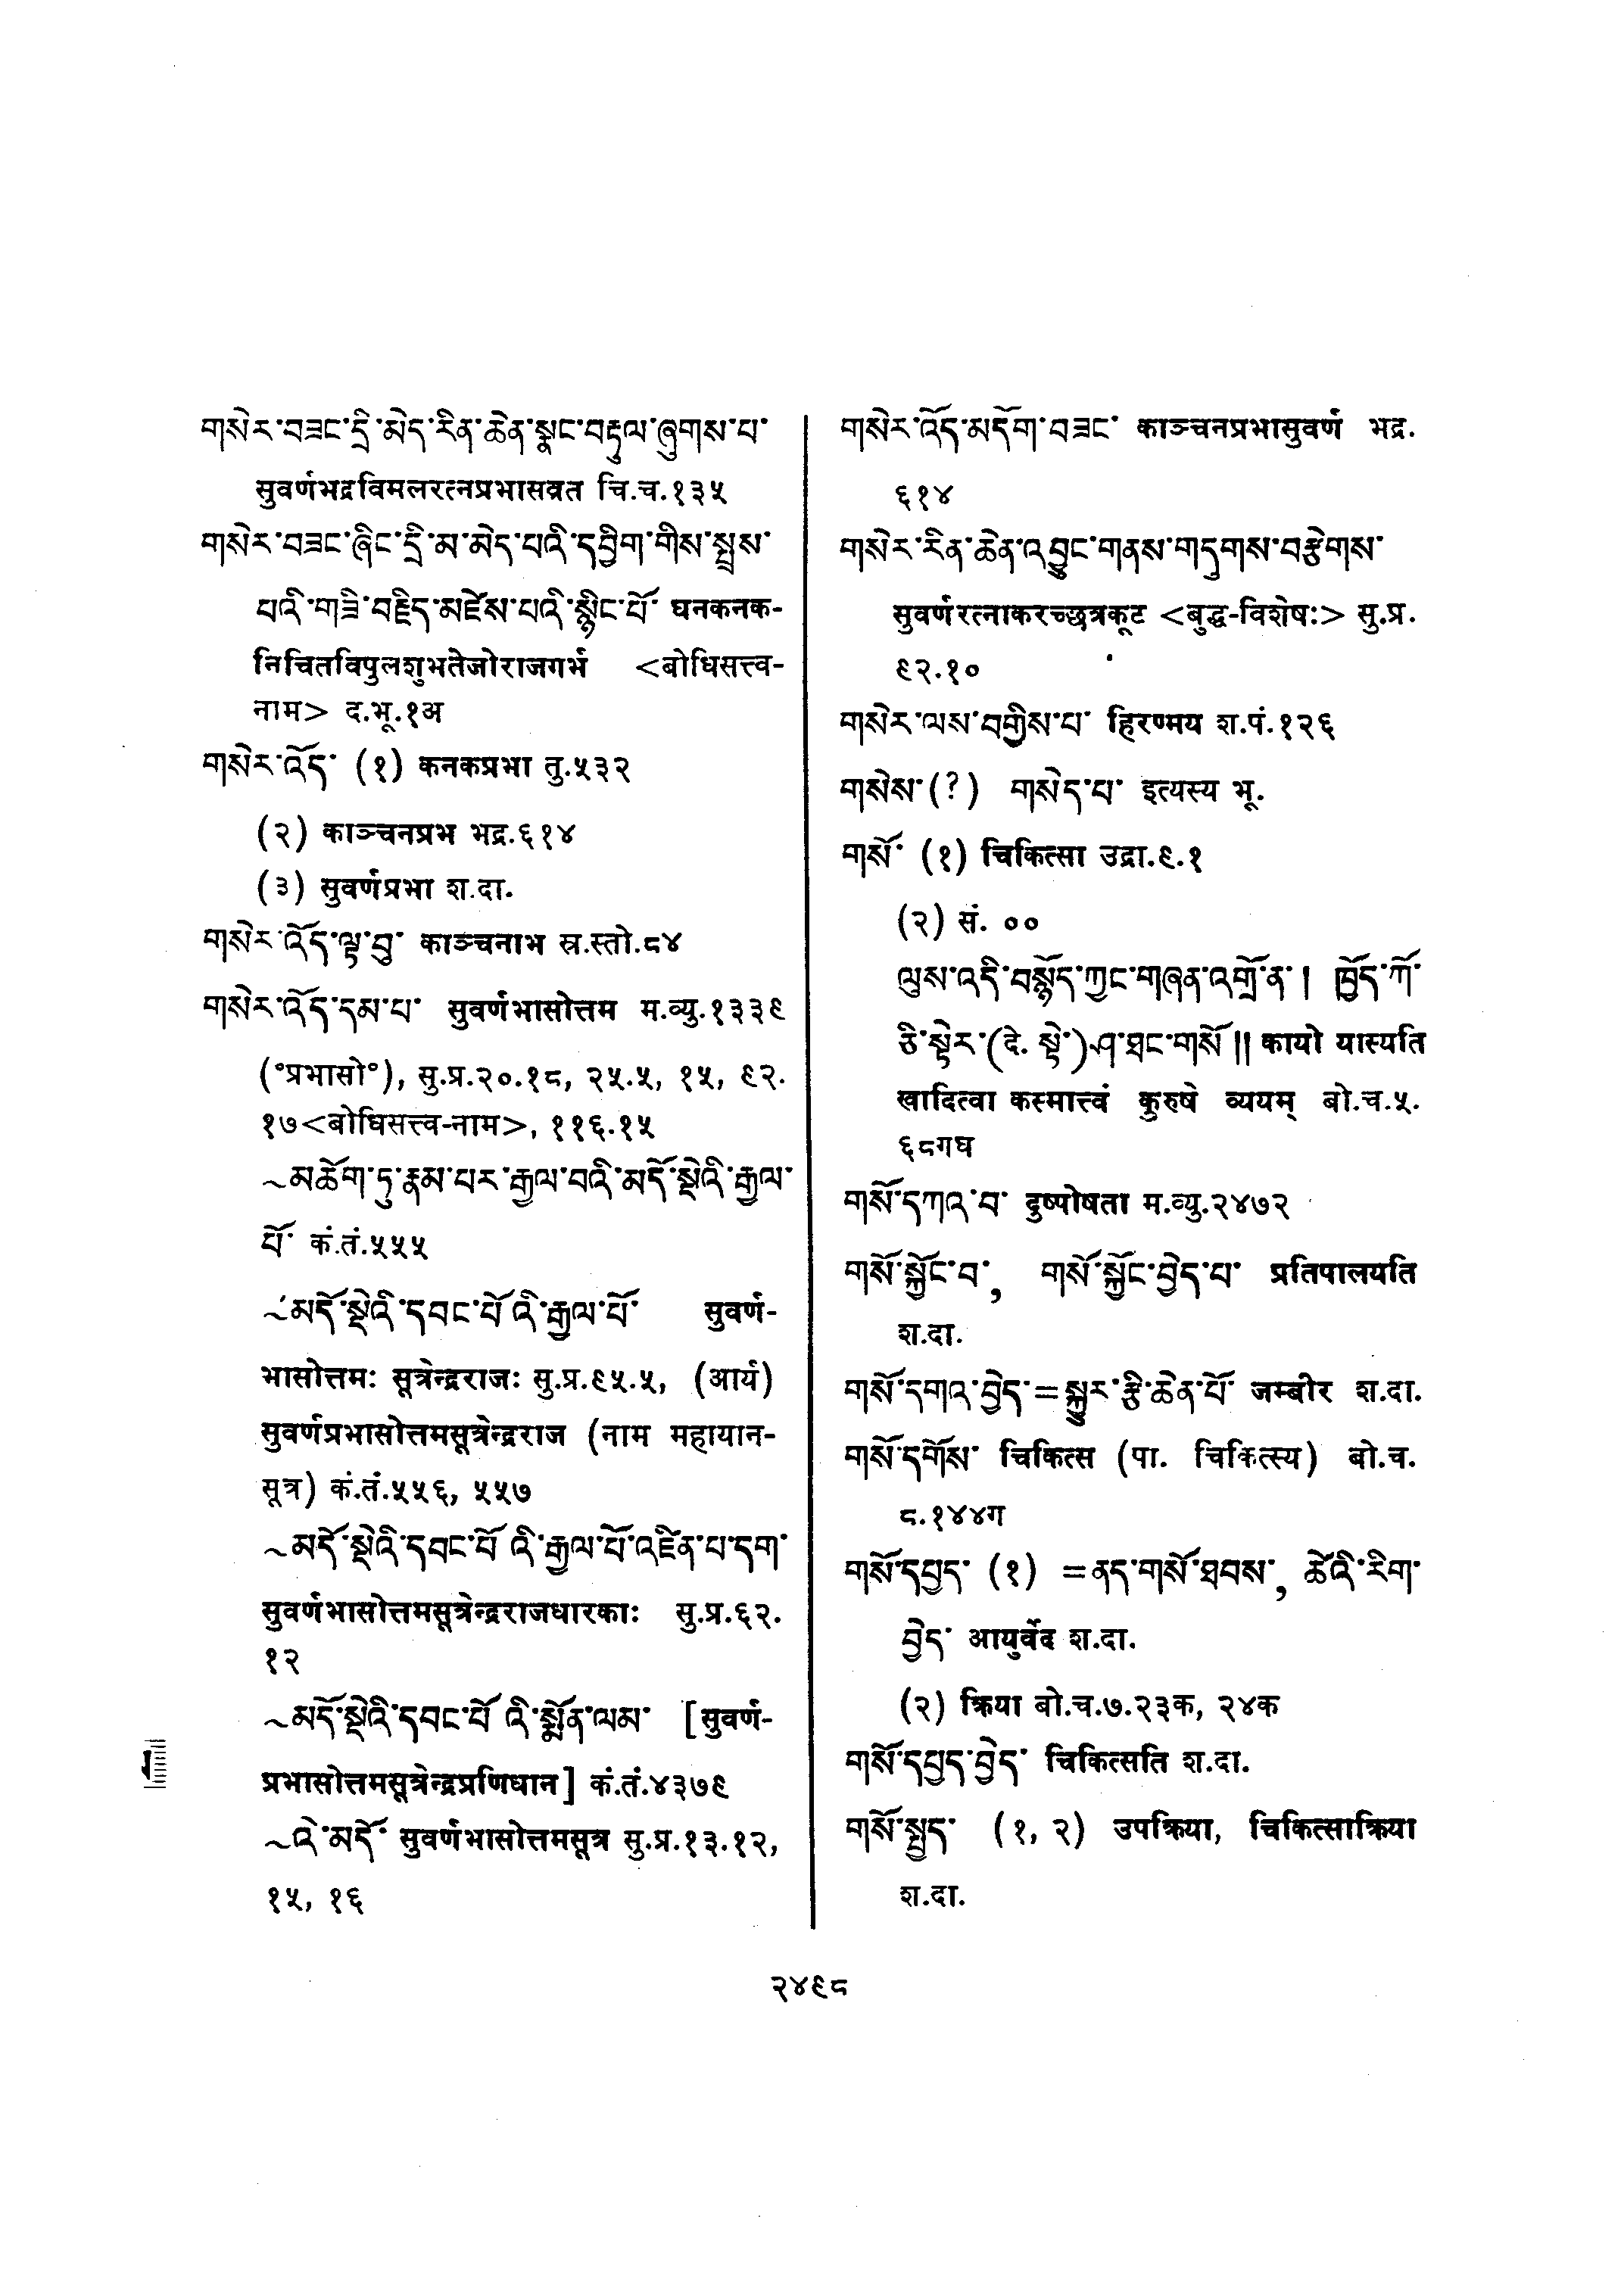 གསེར་བཟང་དྲི་མེད་རིན་ཆེན་སྣང་བརྟུལ་ཞུགས་པ་
सुवर्णभद्रविमलरत्नप्रभासव्रत चि.च.१३५
གསེར་བཟང་ཞིང་དྲི་མ་མེད་པའི་དབྱིག་གིས་སྤྲས་
པའི་གཟི་བརྗིད་མཛེས་པའི་སྙིང་པོ་ घनकनक-
निचितविपुलशुभतेजोराजगर्भ <बोधिसत्त्व-
नाम> द.भू.१अ
གསེར་འོད་ (१) कनकप्रभा तु.५३२
(२) काञ्चनप्रभ भद्र.६१४
(३) सुवर्णप्रभा श.दा.
གསེར་འོད་ལྟ་བུ་ काञ्चनाभ स्र.स्तो.८४
གསེར་འོད་དམ་པ་ सुवर्णभासोत्तम म.व्यु.१३३९
(°प्रभासो°), सु.प्र.२०.१८, २५.५, १५, ९२.
१७<बोधिसत्त्व-नाम>, ११६.१५
~མཆོག་ཏུ་རྣམ་པར་རྒྱལ་བའི་མདོ་སྡེའི་རྒྱལ་
པོ་ कं.तं.५५५
~མདོ་སྡེའི་དབང་པོའི་རྒྱལ་པོ་ सुवर्ण-
भासोत्तमः सूत्रेन्द्रराजः सु.प्र.९५.५, (आर्य)
सुवर्णप्रभासोत्तमसूत्रेन्द्रराज (नाम महायान-
सूत्र) कं.तं.५५६, ५५७
~མདོ་སྡེའི་དབང་པོའི་རྒྱལ་པོ་འཛིན་པ་དག་
सुवर्णभासोत्तमसूत्रेन्द्रराजधारकाः सु.प्र.६२.
१२
~མདོ་སྡེའི་དབང་པོའི་སྨོན་ལམ་ [सुवर्ण-
प्रभासोत्तमसूत्रेन्द्रप्रणिधान] कं.तं.४३७९
~འི་མདོ་ सुवर्णभासोत्तमसूत्र सु.प्र.१३.१२,
१५, १६
གསེར་འོད་མདོག་བཟང་ काञ्चनप्रभासुवर्ण भद्र.
६१४
གསེར་རིན་ཆེན་འབྱུང་གནས་གདུགས་བརྩེགས་
सुवर्णरत्नाकरच्छत्रकूट <बुद्ध-विशेषः> सु.प्र.
९२.१०
གསེར་ལས་བགྱིས་པ་ हिरण्मय श.पं.१२६
གསེས་(?) གསེད་པ་ इत्यस्य भू.
གསོ་ (१) चिकित्सा उद्रा.९.१
(२) सं. ००
ལུས་འདི་བསྙོད་ཀྱང་གཞན་འགྲོ་ན་། ཁྱོད་ཀོ་
ཅི་སྟེར་(दे. སྟེ་)ཤ་ཐང་གསོ།། कायो यास्यति
खादित्वा कस्मात्त्वं कुरुषे व्ययम् बो.च.५.
६८गघ
གསོ་དཀའ་བ་ दुष्पोषता म.व्यु.२४७२
གསོ་སྐྱོང་བ་, གསོ་སྐྱོང་བྱེད་པ་ प्रतिपालयति
श.दा.
གསོ་དགའ་བྱེད་=སྐྱུར་རྩི་ཆེན་པོ་ जम्बीर श.दा.
གསོ་དགོས་ चिकित्स (पा. चिकित्स्य) बो.च.
८.१४४ग
གསོ་དཔྱད་ (१) =ནད་གསོ་ཐབས་, ཚེའི་རིག་
བྱེད་ आयुर्वेद श.दा.
(२) क्रिया बो.च.७.२३क, २४क
གསོ་དཔྱད་བྱེད་ चिकित्सति श.दा.
གསོ་སྤྱད་ (१, २) उपक्रिया, चिकित्साक्रिया
श.दा.
२४९८